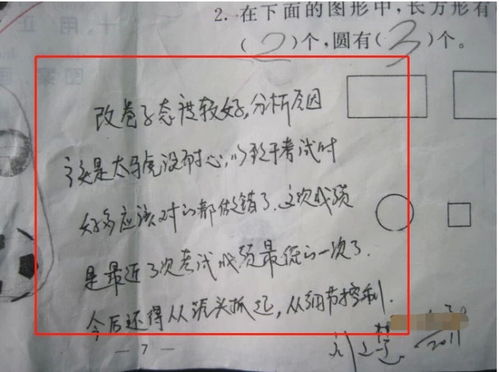 2. 在下面的图形中，长方形有
（2）个，圆有（3）个。
改卷子态度较好，分析原因
主要是太马虎没耐心，以致于考试时
好多应该对的都做错了。这次成绩
是最近了次考试成绩最低的一次了。
今后还得从源头抓起，从细节控制。
— 7 —
2011